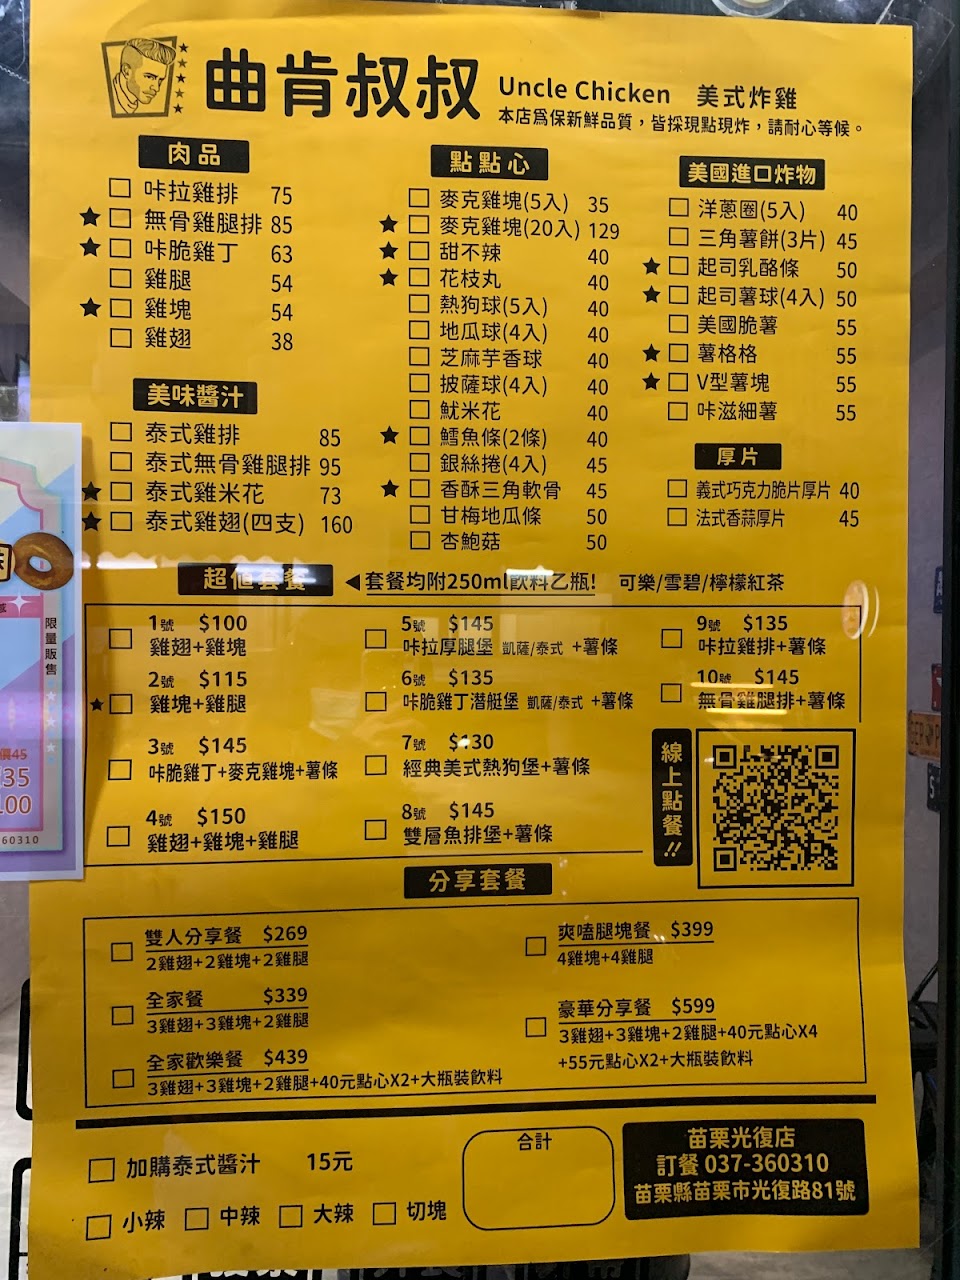 曲肯叔叔 Uncle Chicken 美式炸雞
本店為保新鮮品質，皆採現點現炸，請耐心等候。
肉品
咔拉雞排 75
★ 無骨雞腿排 85
★ 咔脆雞丁 63
雞腿 54
★ 雞塊 54
雞翅 38
美味醬汁
泰式雞排 85
泰式無骨雞腿排 95
★ 泰式雞米花 73
★ 泰式雞翅(四支) 160
點點心
麥克雞塊(5入) 35
★ 麥克雞塊(20入) 129
★ 甜不辣 40
★ 花枝丸 40
熱狗球(5入) 40
地瓜球(4入) 40
芝麻芋香球 40
披薩球(4入) 40
魷米花 40
★ 鱈魚條(2條) 40
銀絲捲(4入) 45
★ 香酥三角軟骨 45
甘梅地瓜條 50
杏鮑菇 50
美國進口炸物
洋蔥圈(5入) 40
三角薯餅(3片) 45
★ 起司乳酪條 50
★ 起司薯球(4入) 50
美國脆薯 55
★ 薯格格 55
★ V型薯塊 55
咔滋細薯 55
厚片
義式巧克力脆片厚片 40
法式香蒜厚片 45
超值套餐 ◀套餐均附250ml飲料乙瓶! 可樂/雪碧/檸檬紅茶
1號 $100
雞翅+雞塊
★ 2號 $115
雞塊+雞腿
3號 $145
咔脆雞丁+麥克雞塊+薯條
4號 $150
雞翅+雞塊+雞腿
5號 $145
咔拉厚腿堡 凱薩/泰式 +薯條
6號 $135
咔脆雞丁潛艇堡 凱薩/泰式 +薯條
7號 $130
經典美式熱狗堡+薯條
8號 $145
雙層魚排堡+薯條
9號 $135
咔拉雞排+薯條
10號 $145
無骨雞腿排+薯條
線上點餐!!
分享套餐
雙人分享餐 $269
2雞翅+2雞塊+2雞腿
全家餐 $339
3雞翅+3雞塊+2雞腿
全家歡樂餐 $439
3雞翅+3雞塊+2雞腿+40元點心X2+大瓶裝飲料
爽嗑腿塊餐 $399
4雞塊+4雞腿
豪華分享餐 $599
3雞翅+3雞塊+2雞腿+40元點心X4
+55元點心X2+大瓶裝飲料
加購泰式醬汁 15元
小辣 中辣 大辣 切塊
合計
苗栗光復店
訂餐 037-360310
苗栗縣苗栗市光復路81號
限量販售
價45
35
60310